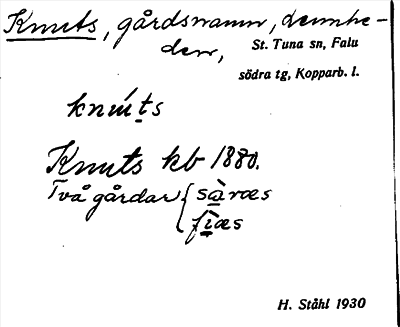 Knuts, gårdsnamn, i denna he-
den,
St. Tuna sn, Falu
södra tg, Kopparb. l.
knúts
Knuts kb 1880.
Två gårdar { sàræs
fìæs
H. Ståhl 1930